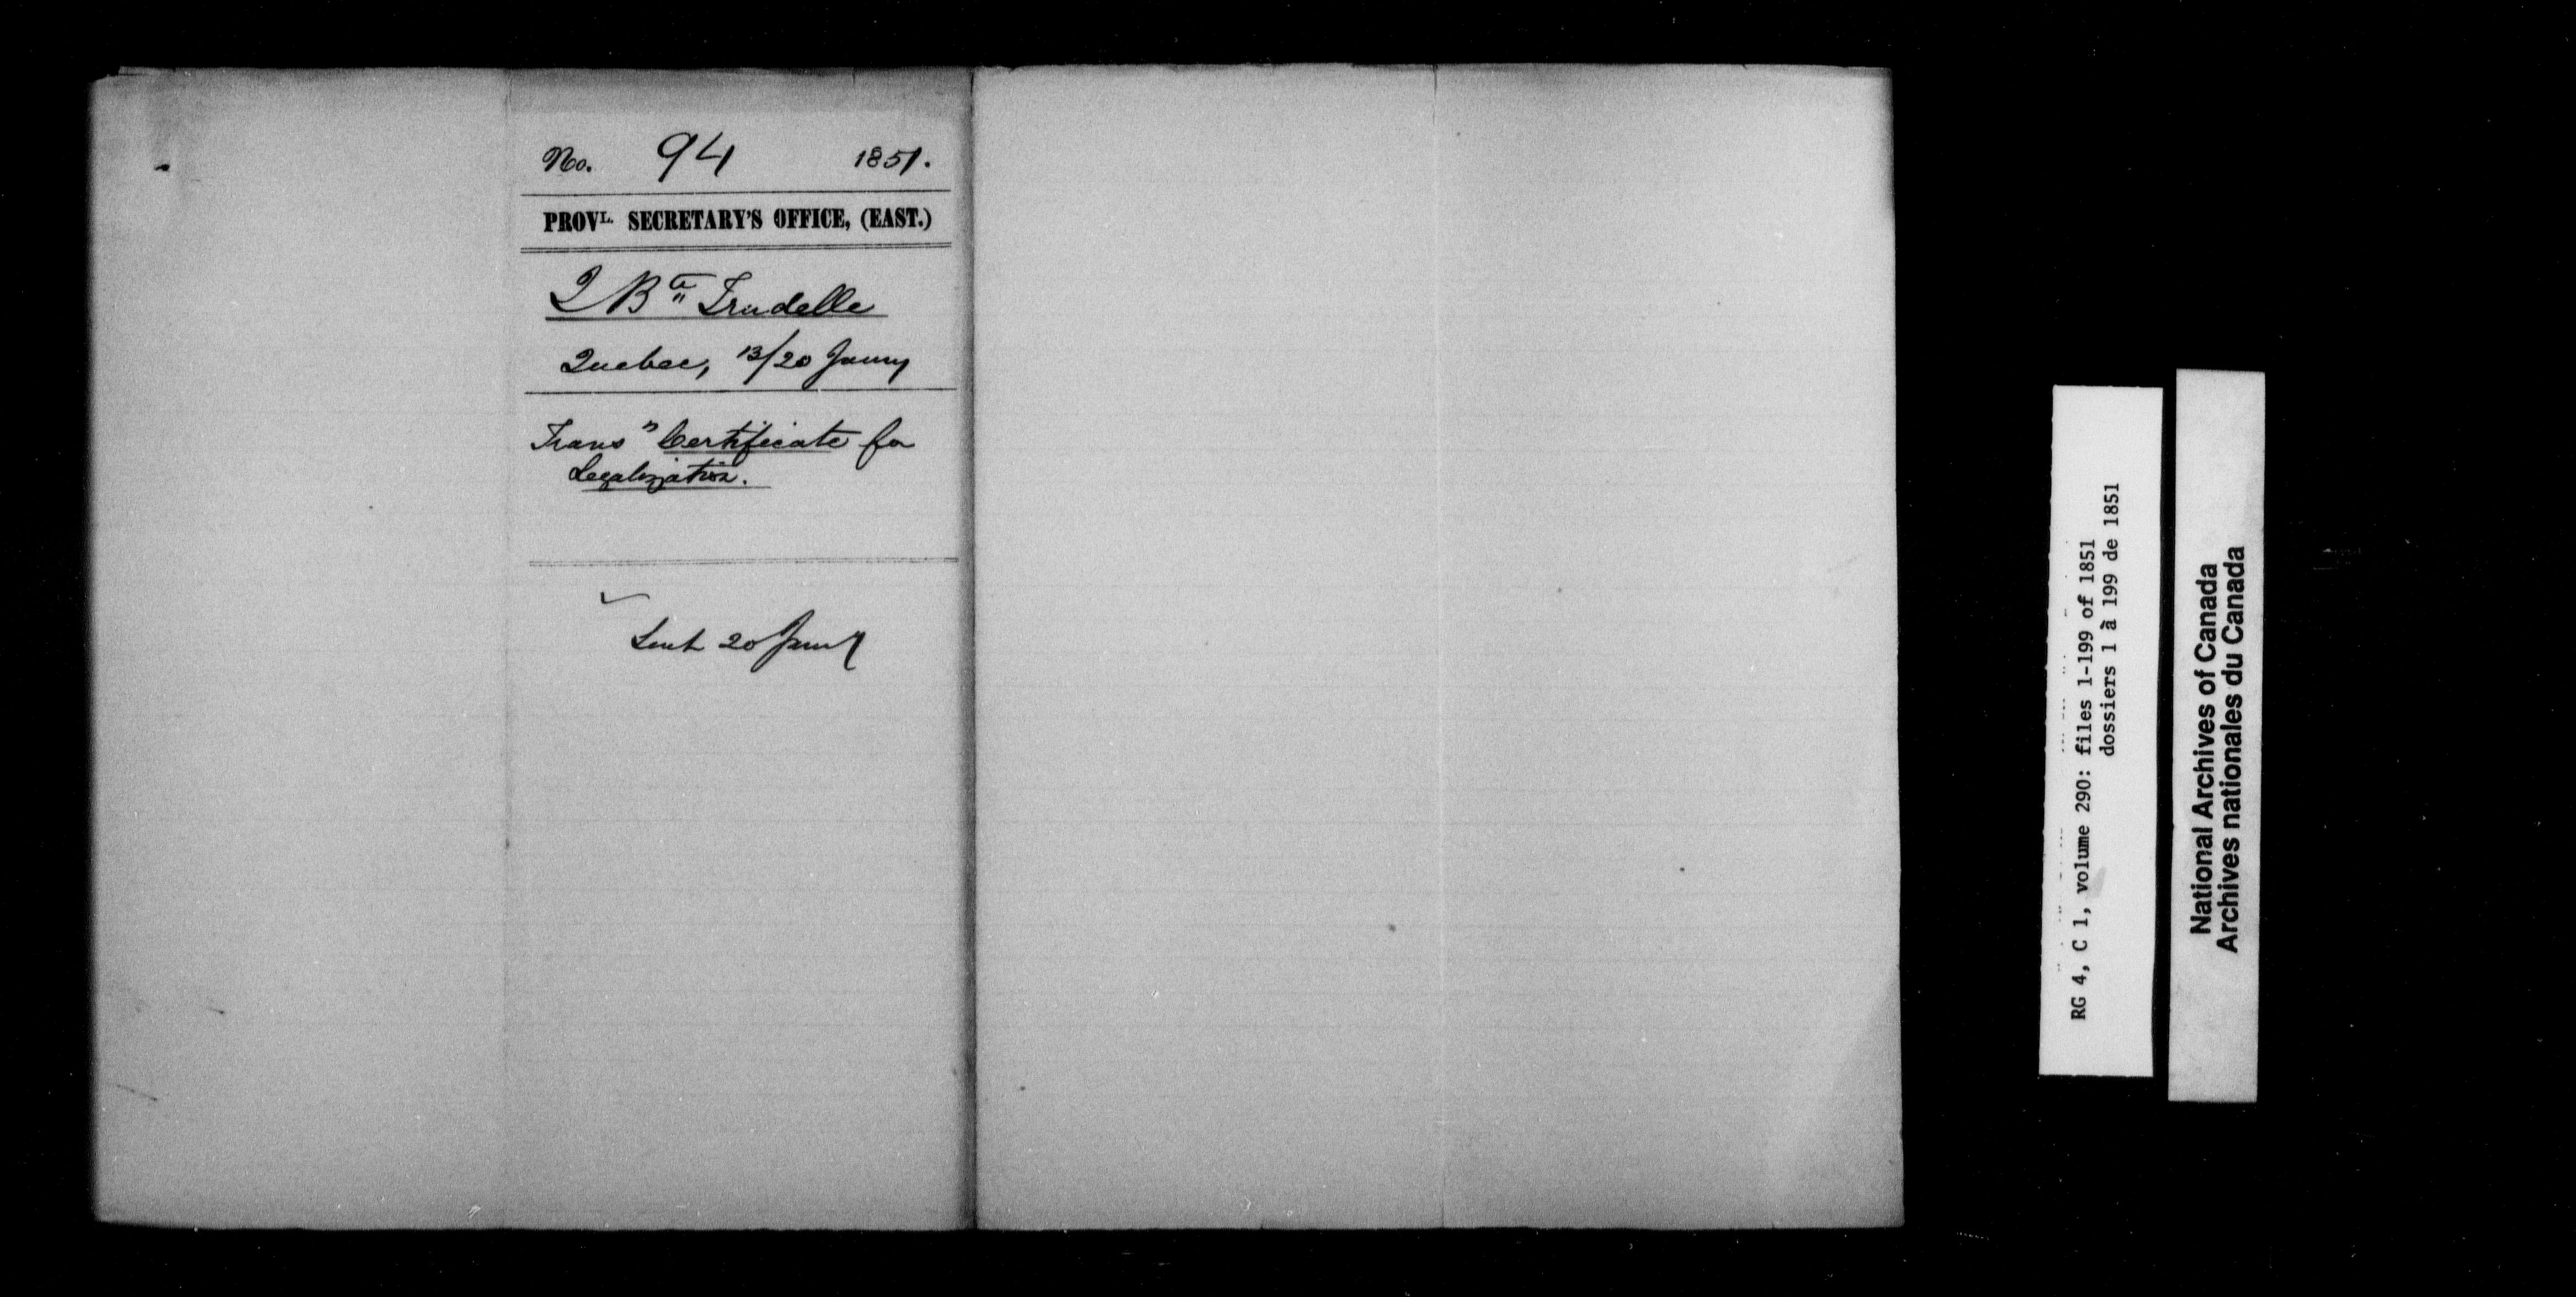 No. 94 1851.
PROVL. SECRETARY'S OFFICE, (EAST.)
J Bte Trudelle
Quebec, 13/20 Jany
Transg Certificate for
Legalization.
Sent 20 Jany
RG 4, C 1, volume 290: files 1-199 of 1851
dossiers 1 à 199 de 1851
National Archives of Canada
Archives nationales du Canada